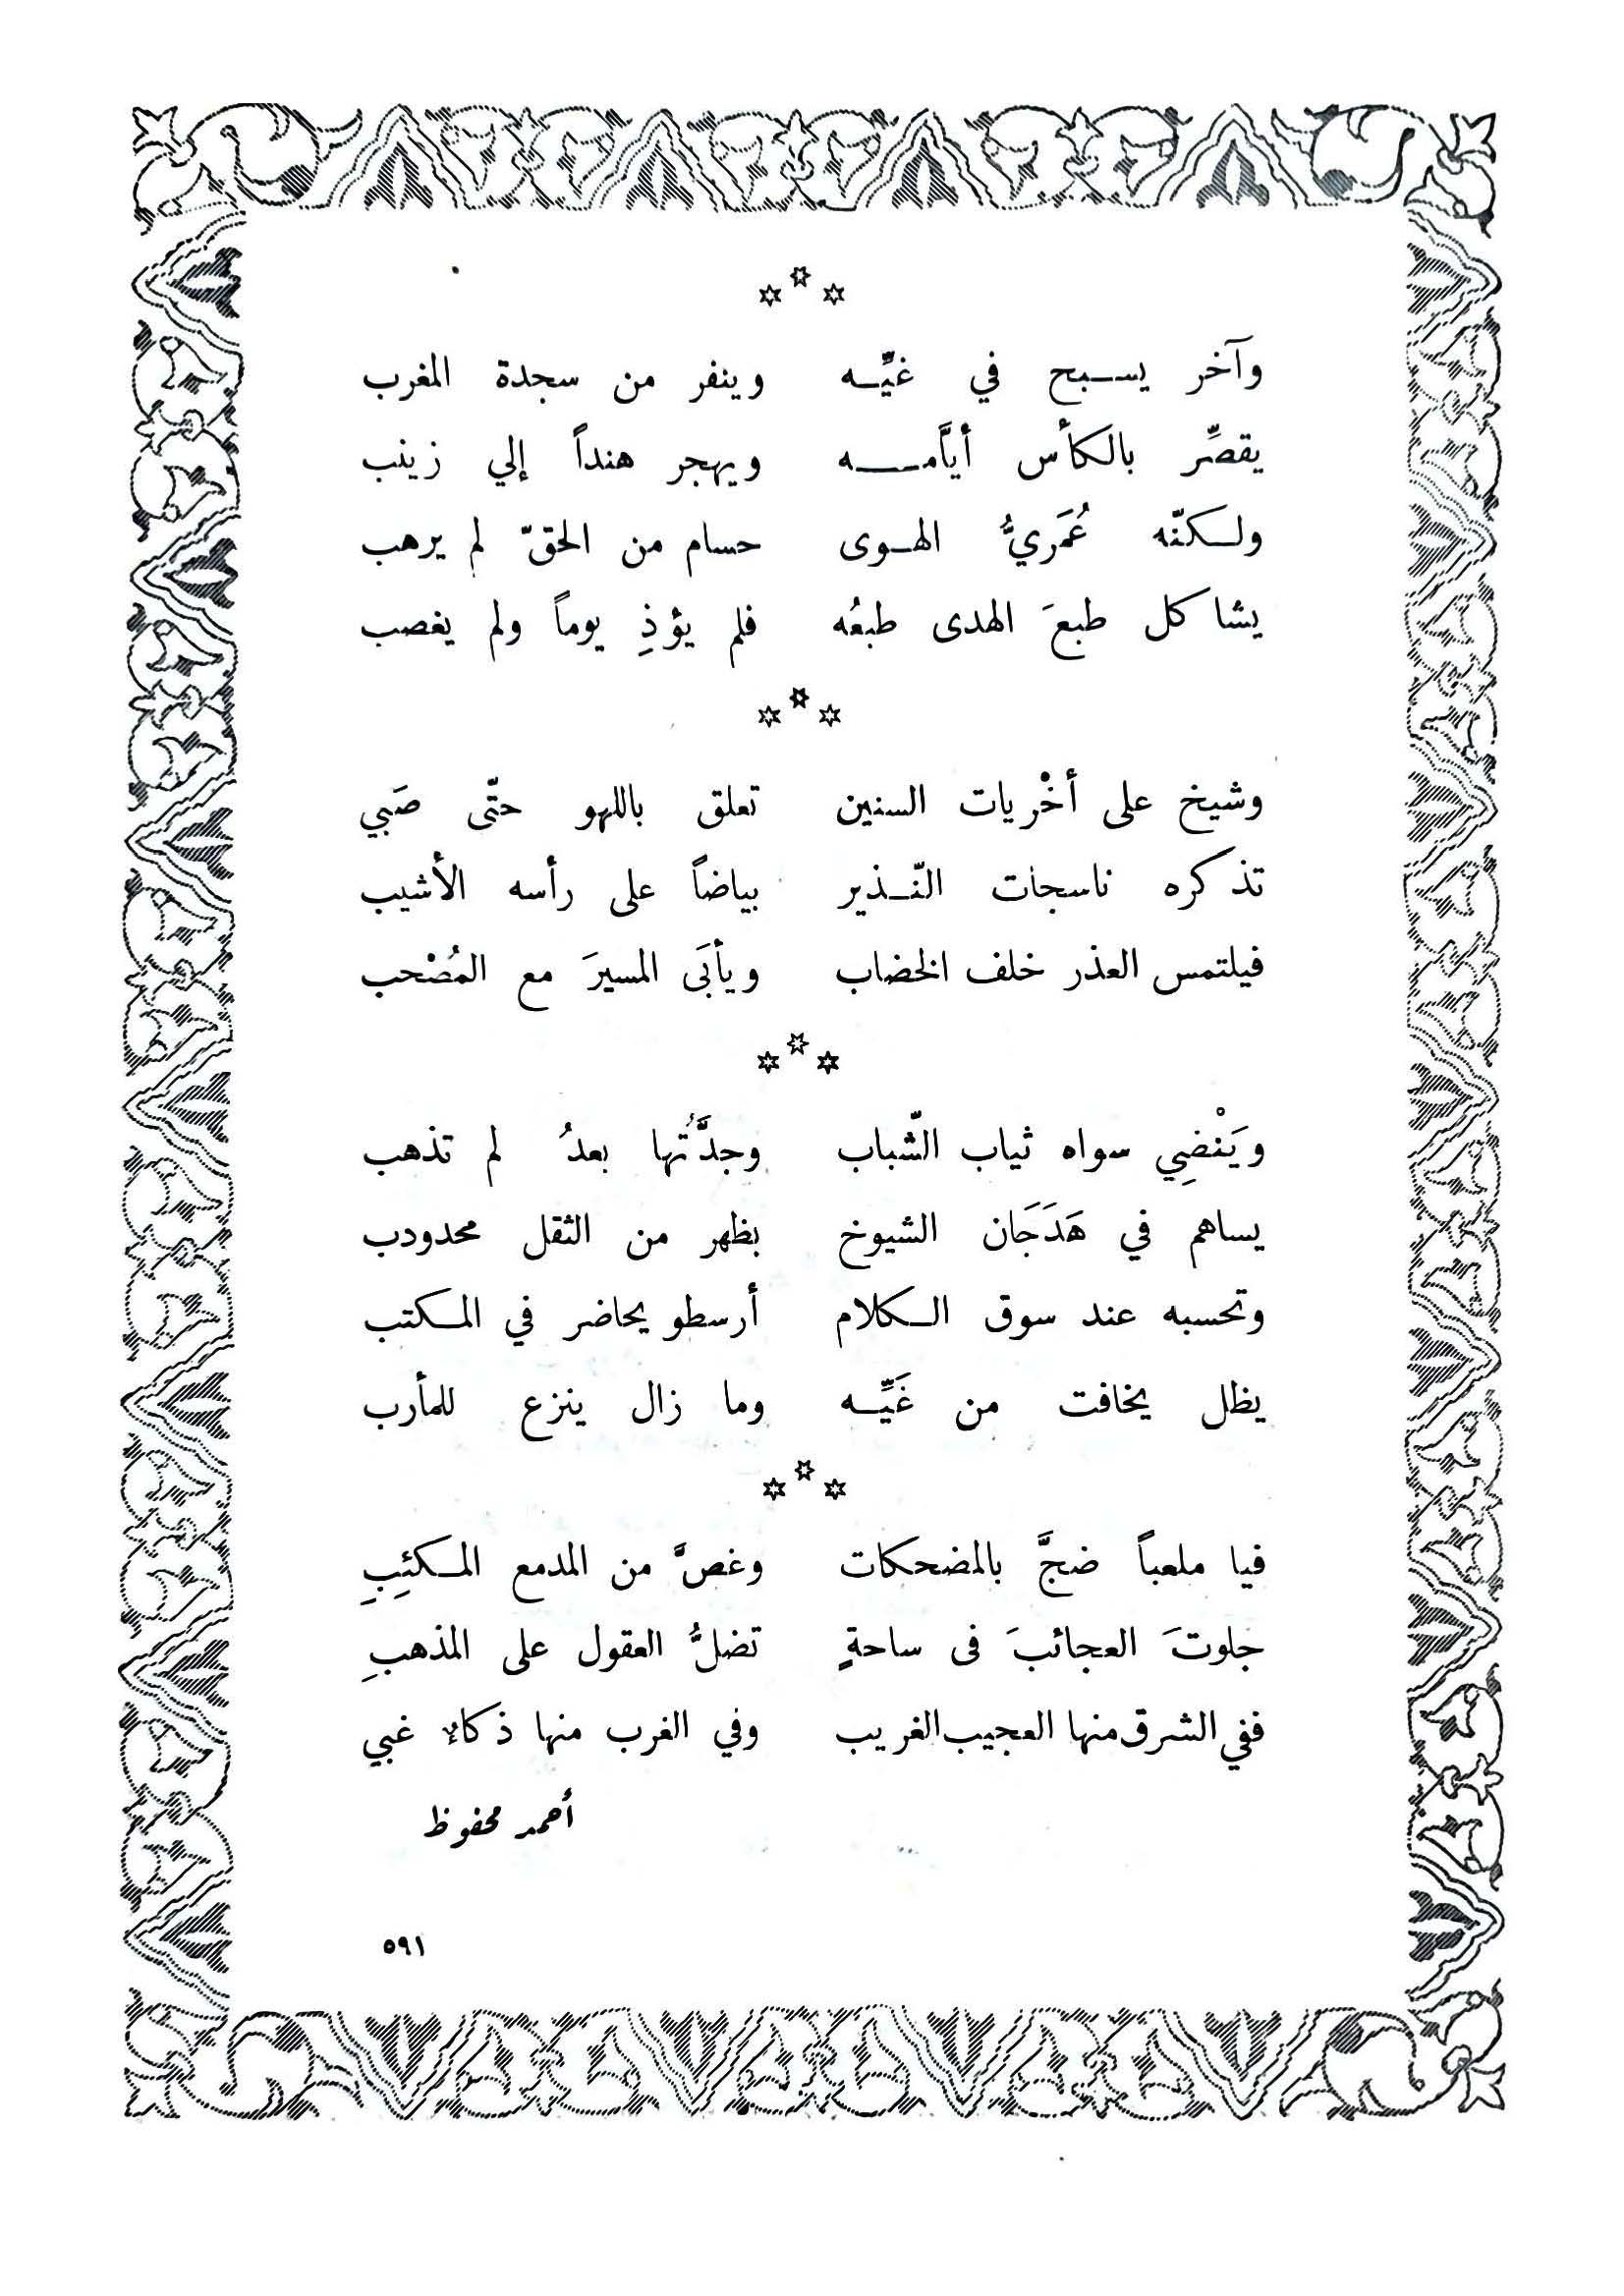 وآخر يسبح في غيِّه وينفر من سجدة المغرب
يقصِّر بالكأس أيَّامه ويهجر هنداً إلي زينب
ولكنّه عُمَريُّ الهوى حسام من الحقّ لم يرهب
يشاكل طبعَ الهدى طبعُه فلم يؤذِ يوماً ولم يغصب
وشيخ على أخْريات السنين تعلق باللهو حتّى صَبي
تذكره ناسجات النّذير بياضاً على رأسه الأشيب
فيلتمس العذر خلف الخضاب ويأبَى المسيرَ مع المُصْحب
ويَنْضِي سواه ثياب الشّباب وجدَّتُها بعدُ لم تذهب
يساهم في هَدَجَان الشيوخ بظهر من الثقل محدودب
وتحسبه عند سوق الكلام أرسطو يحاضر في المكتب
يظل يخافت من غَيِّه وما زال ينزع للمأرب
فيا ملعباً ضجَّ بالمضحكات وغصَّ من المدمع المكئِبِ
جلوتَ العجائبَ فى ساحةٍ تضلُّ العقول على المذهبِ
ففي الشرق منها العجيب الغريب وفي الغرب منها ذكاء غبي
أحمد محفوظ
٥٩١